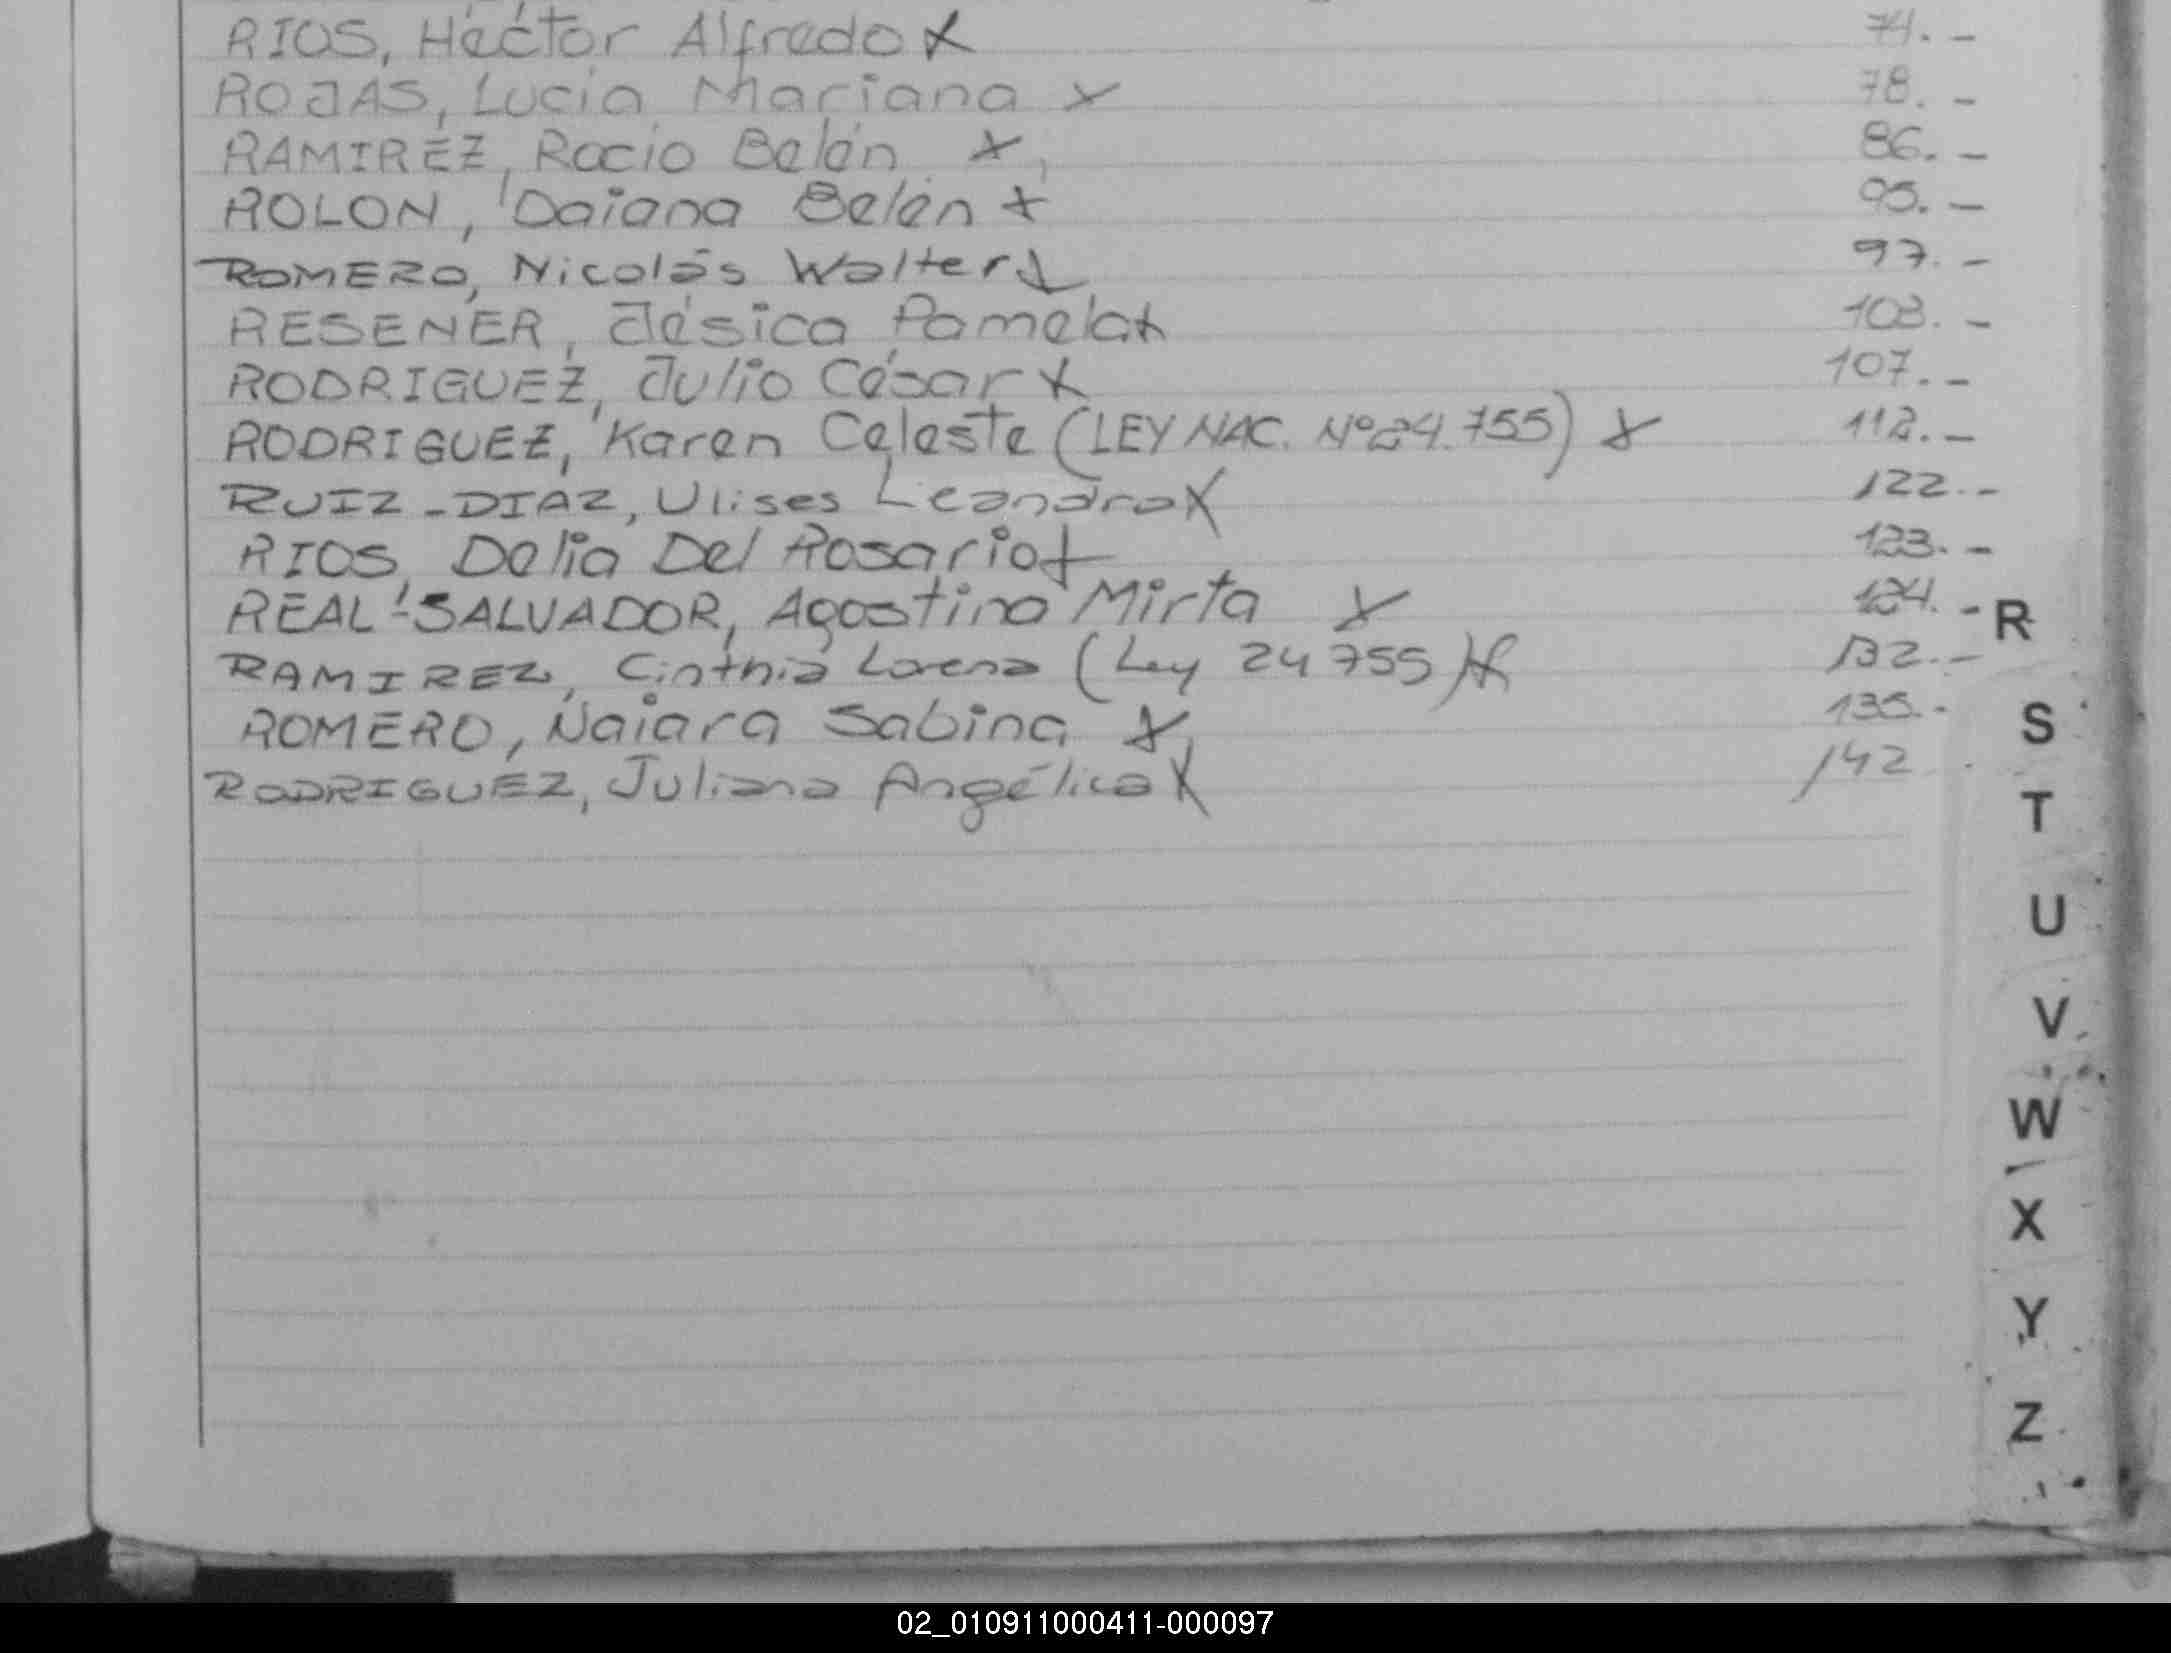 RIOS, Héctor Alfredo X 74.-
ROJAS, Lucia Mariana X 78.-
RAMIREZ, Rocio Belén X 86.-
ROLON, Daiana Belén X 95.-
ROMERO, Nicolás Walter X 97.-
RESENER, Jésica Pamela X 103.-
RODRIGUEZ, Julio César X 107.-
RODRIGUEZ, Karen Celeste (LEY NAC. Nº 24.755) X 112.-
RUIZ-DIAZ, Ulises Leandro X 122.-
RIOS, Delia Del Rosario X 123.-
REAL-SALVADOR, Agostina Mirta X 124.-
RAMIREZ, Cinthia Lorena (Ley 24755) X 132.-
ROMERO, Naiara Sabina X 135.-
RODRIGUEZ, Juliana Angélica X 142
R
S
T
U
V
W
X
Y
Z
02_010911000411-000097